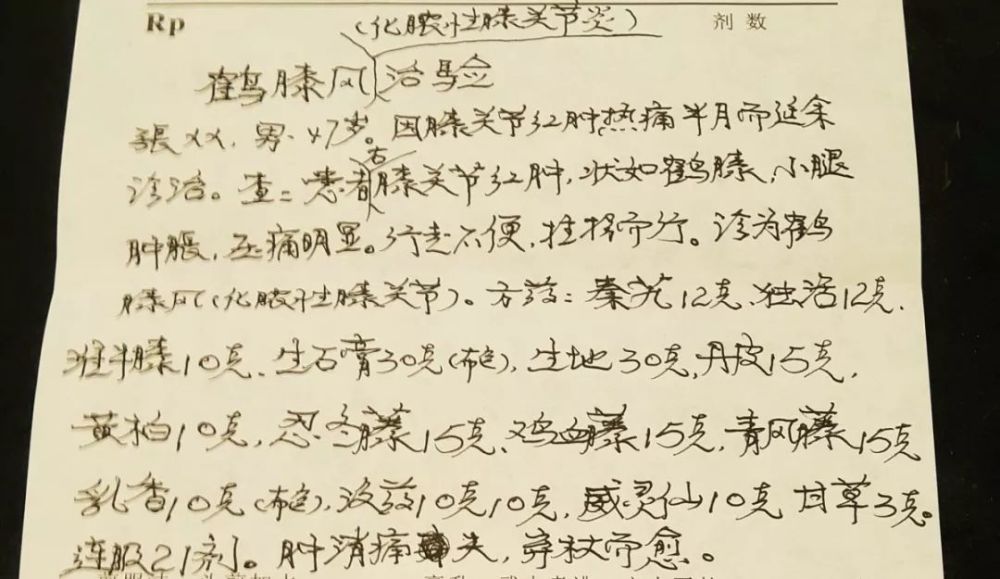 Rp
剂数
(化脓性膝关节炎)
鹤膝风治验
張XX、男、47岁。因膝关节红肿热痛半月而延余
诊治。查:患者右膝关节红肿,状如鹤膝,小腿
肿胀,压痛明显。行走不便,拄拐而行。诊为鹤
膝风(化脓性膝关节)。方药:秦艽12克、独活12克、
准牛膝10克、生石膏30克(布包),生地30克,丹皮15克,
黄柏10克,忍冬藤15克、鸡血藤15克,青风藤15克
乳香10克(布包),没药10克10克,威灵仙10克 甘草3克。
连服21剂。肿消痛失,弃杖而愈。